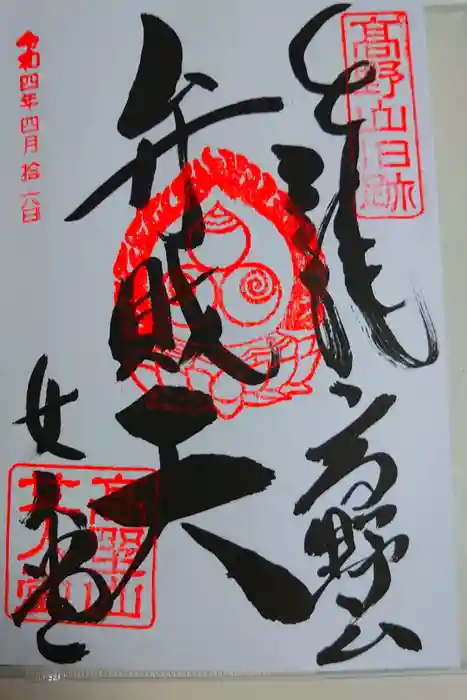 奉拝
高野山
高野山旧跡
弁財天
女人堂
高野山
女人堂
令和四年四月拾六日